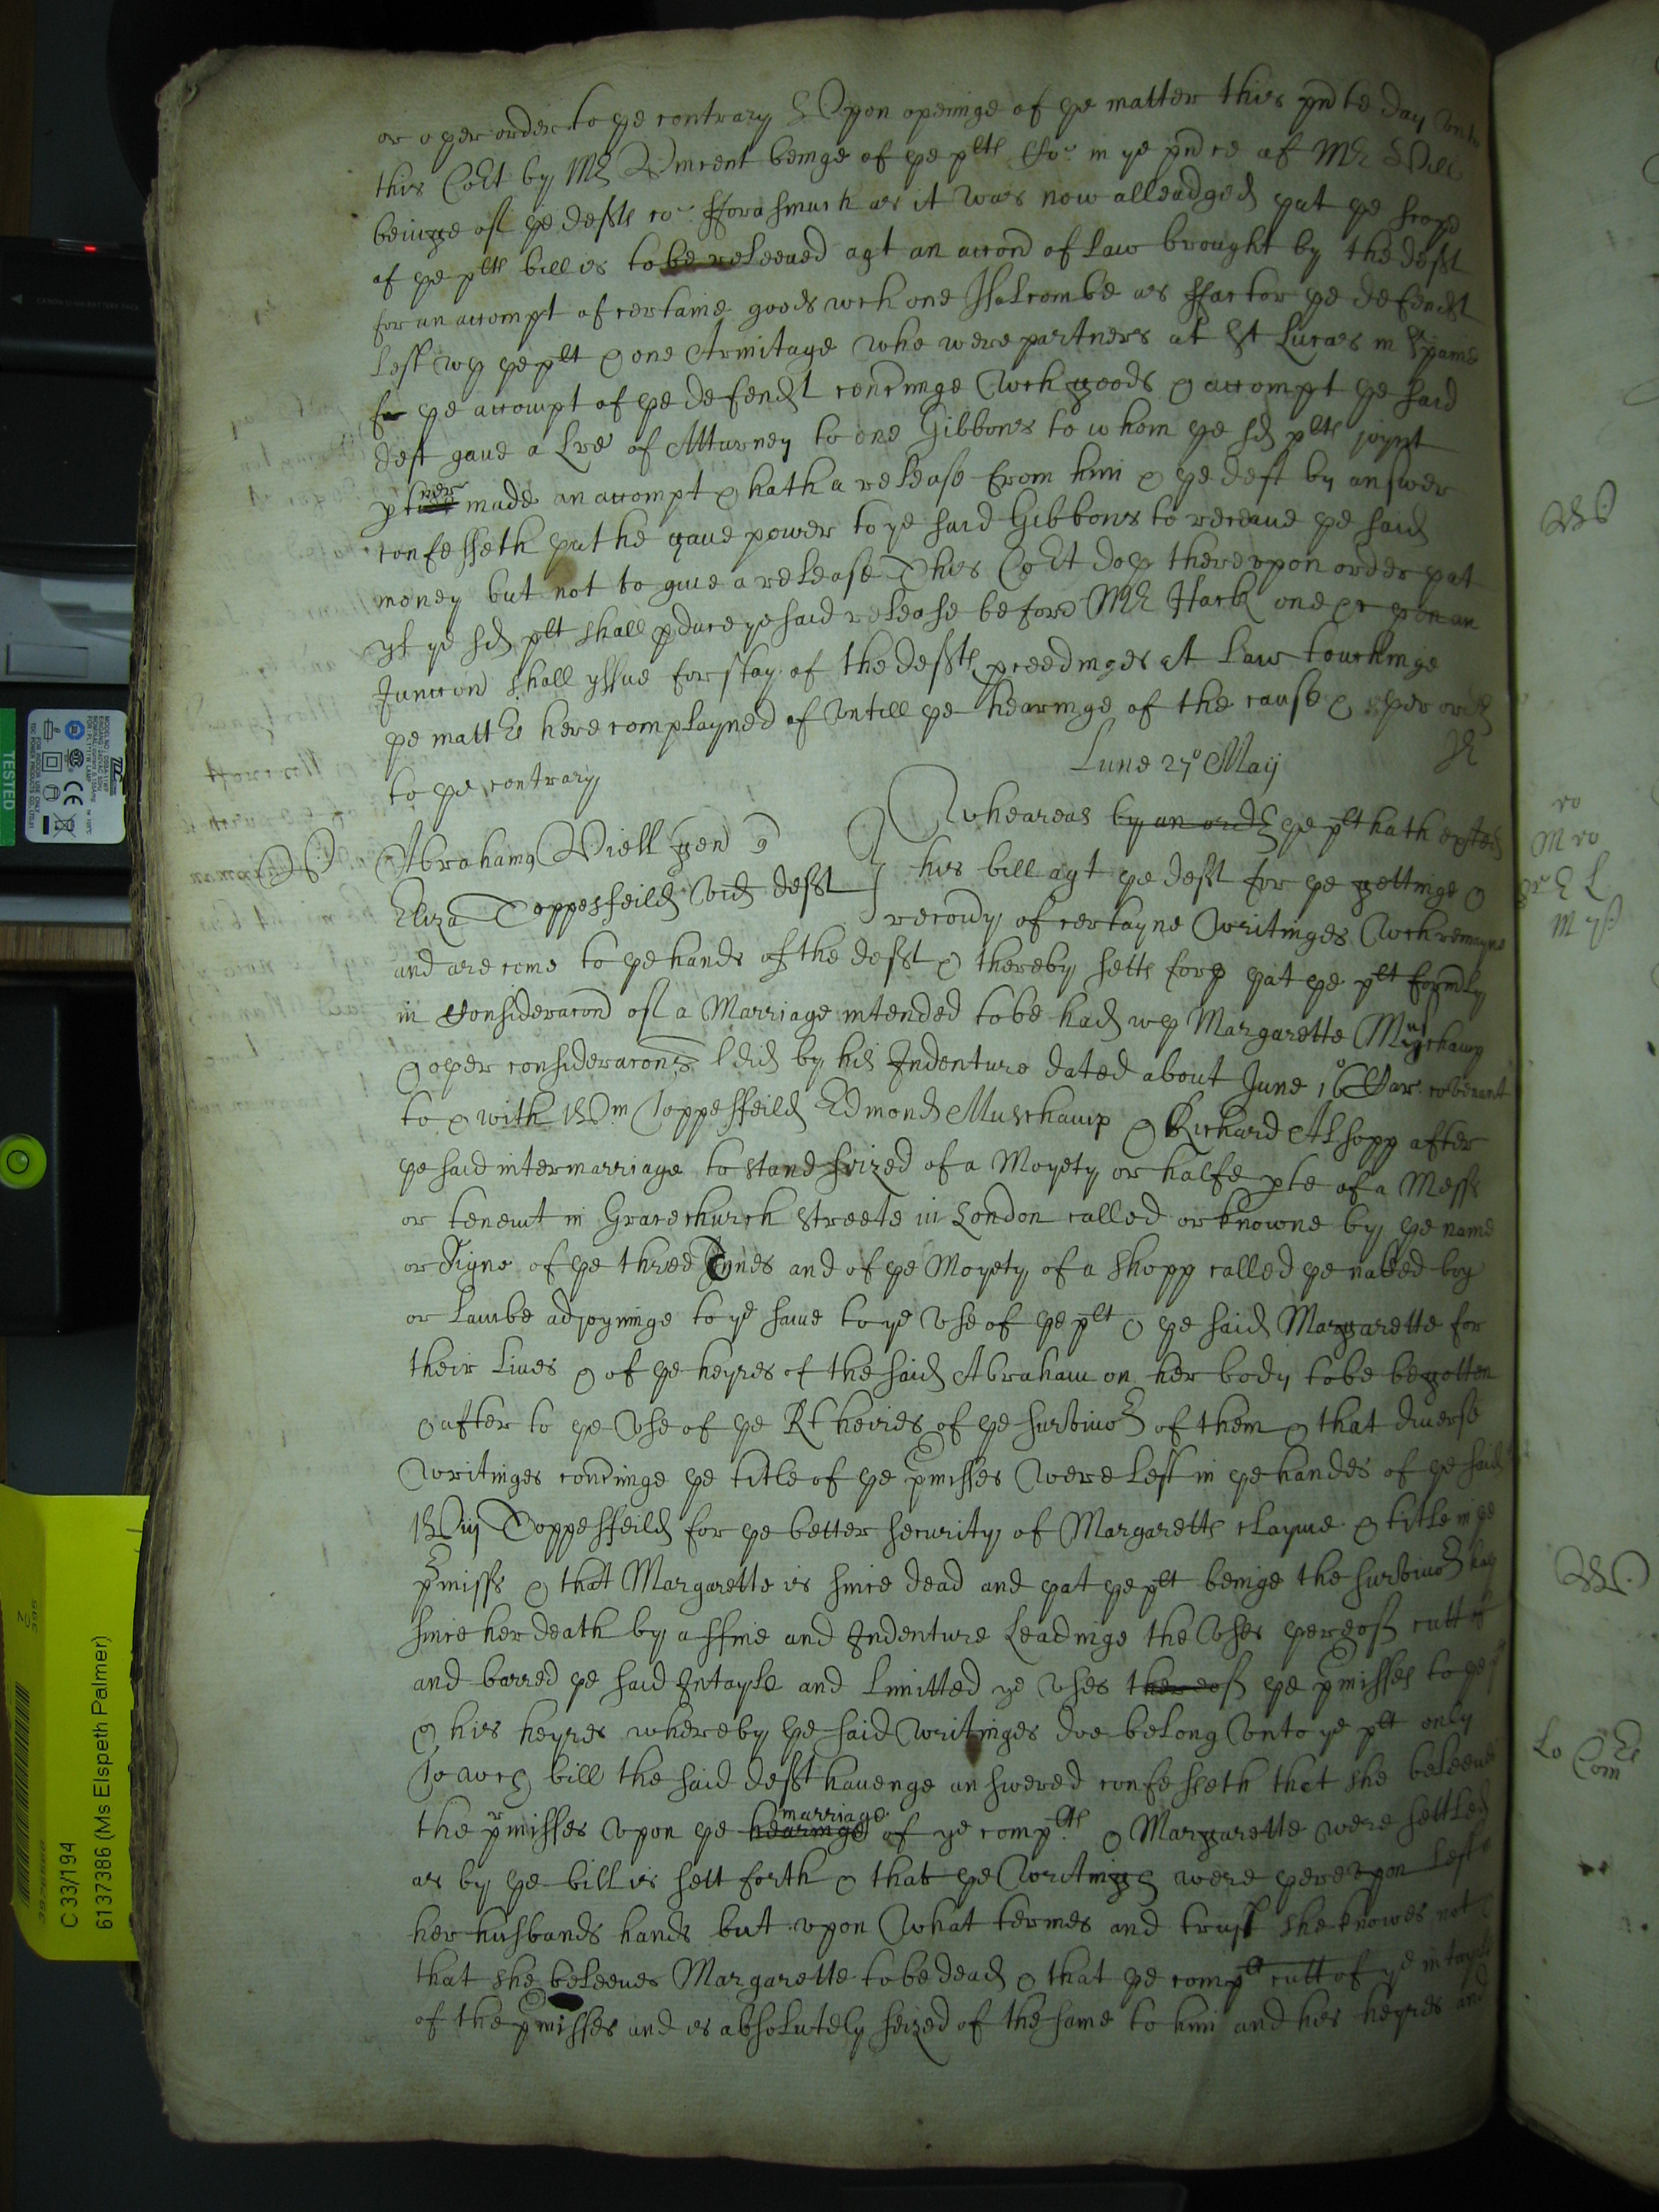 or oper order to ye contrary Upon openinge of ye matter this pnte day vnto
this Cort by Mr Vincent beinge of ye plts Co: in ye pnce of Mr
beinge of ye defts co: fforasmuch as it was now alleadged yat ye scope
of ye plts bill is to be releeued agt an accon of Law brought by the deft
for an accompt of certaine goods wch one Holcombe as ffactor ye defendt
left wth ye plt & one Armitage who were partners at St Lucas in Spaine
for ye accompt of ye defendt concninge wch goods & accompt ye said
deft gaue a Lre of Atturney to one Gibbons to whom ye sd plts joynt
ptner made an accompt & hath a release from him & ye deft by answer
confesseth yat he gaue power to ye said Gibbons to receaue ye said
money but not to giue a release This Cort doth therevpon order yat
yf ye sd plt shall pduce ye said release before Mr one &c yen an
Junccon shall yssue for stay of the defts pceedinges at Law touchinge
ye mattrs here complayned of vntill ye hearinge of the cause & oper ordr
to ye contrary
Lune 27o Maij
Abrahamus Viell gen
Eliza Toppesfeild vid deft
Wheareas by an ordr ye plt hath exhted
his bill agt ye deft for ye gettinge &
recouy of certayne writinges wch remayne
and are come to ye hands of the deft & thereby setts forth yat ye plt formly
in Consideracon of a Marriage intended to be had wth Margarette Muschamp
& oper consideracons did by his Indenture dated about June 16 Car: couenant
to & with Wm Toppesfeild Edmond Muschamp & Richard Alsopp after
ye said intermarriage to stand seized of a Moyety or halfe pte of a Messe
or tenemt in Gracechurch Streete in London called or knowne by ye name
or Signe of ye three Tunnes and of ye Moyety of a Shopp called ye naked boy
or Lambe adjoyninge to ye same to ye vse of ye plt & ye said Margarette for
their Liues & of ye heyres of the said Abraham on her body to be begotten
& after to ye vse of ye Rt heires of ye suruiuor of them & that diuerse
writinges concninge ye title of ye pmisses were left in ye handes of ye said
Wm Toppesfeild for ye better security of Margaretts clayme & title in ye
pmisss & that Margarette is since dead and yat ye plt beinge the suruiuor hath
since her death by a ffine and Indenture Leadinge the vses yereof cutt of
and barred ye said Intayle and Limitted ye vses thereof ye pmisses to
& his heyres whereby ye said writinges doe belong vnto ye plt only
To wch bill the said deft hauenge answered confesseth that she beleeues
the pmisses vpon ye hearinge marriage of ye complts & Margarette were settled
as by ye bill is sett forth & that ye writings were yerevpon left
her husbands hands but vpon what termes and trust she knowes not
that she beleeues Margarette to be dead & that ye complt cutt of ye intayle
of the pmisses and is absolutely seized of the same to him and his heyres and
C 33/194
6137386 (Ms Elspeth Palmer)
TESTED